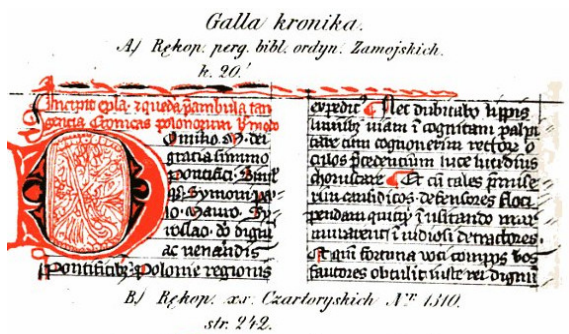 Galla kronika.
A) Rękop. perg. bibl. ordyn. Zamojskich.
k. 20.
Incipit epla. ⁊ queda pambula tan
gencia Cronicas polonorum
Domino M. dei
gracia summo
pontifici. Simul
qꝫ Symoni pa
lo. Mauro. Sy
roslao. do dignis
ac venandis
Pontificibꝫ Polonie regionis
expedit Nec dubitabo
luminibꝫ viam cognitam palpi
tare cum cognoverim rectores o
culos pcedentium luce lucidius
choruscare. Et cu tales pmise
rim causidicos. defensores floci
pendam quicqd musitando mur
muraverint invidiosi detractores.
Et qm fortuna voti compos vos
fautores obtulit iuste rei dignum
B) Rękop. xv. Czartoryskich Nr. 1310.
str. 242.